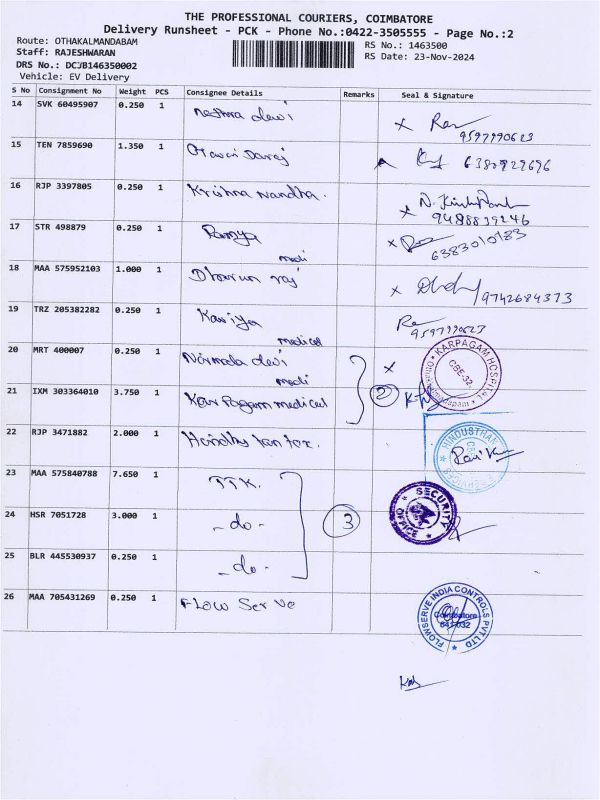 THE PROFESSIONAL COURIERS, COIMBATORE
Delivery Runsheet - PCK - Phone No.:0422-3505555 - Page No.:2
Route: OTHAKALMANDABAM
RS No.: 1463500
Staff: RAJESHWARAN
RS Date: 23-Nov-2024
DRS No.: DCJB146350002
Vehicle: EV Delivery
S No Consignment No Weight PCS Consignee Details Remarks Seal & Signature
14 SVK 60495907 0.250 1 devi
9597990623
15 TEN 7859690 1.350 1
6380929696
16 RJP 3397805 0.250 1 Krishna nandha.
9488839246
17 STR 498879 0.250 1 Ramya
medi 6383010183
18 MAA 575952103 1.000 1 Dharun raj
9742684373
19 TRZ 205382282 0.250 1 Kaviya
medical 9597990623
20 MRT 400007 0.250 1 Nirmala devi
medi
KARPAGAM HOSPITAL
CBE-32.
21 IXM 303364010 3.750 1 Karpagam medical 2
22 RJP 3471882 2.000 1
HINDUSTHAN
SERVICES
23 MAA 575840788 7.650 1 TTK.
SECURITY
OFFICE
24 HSR 7051728 3.000 1 -do- 3
25 BLR 445530937 0.250 1 -do-
26 MAA 705431269 0.250 1 Flow Serve
FLOWSERVE INDIA CONTROLS PVT LTD
Coimbatore
641 032